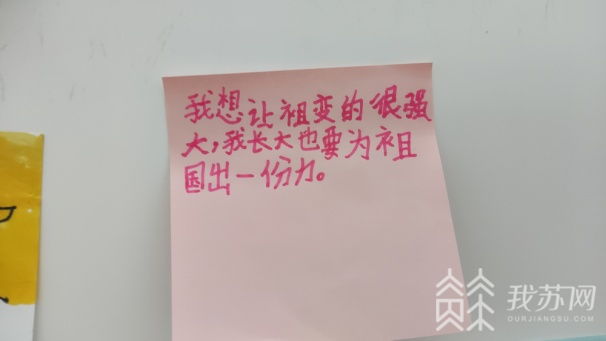 我想让祖变的很强
大,我长大也要为祖
国出一份力。
我苏网
OURJIANGSU.COM